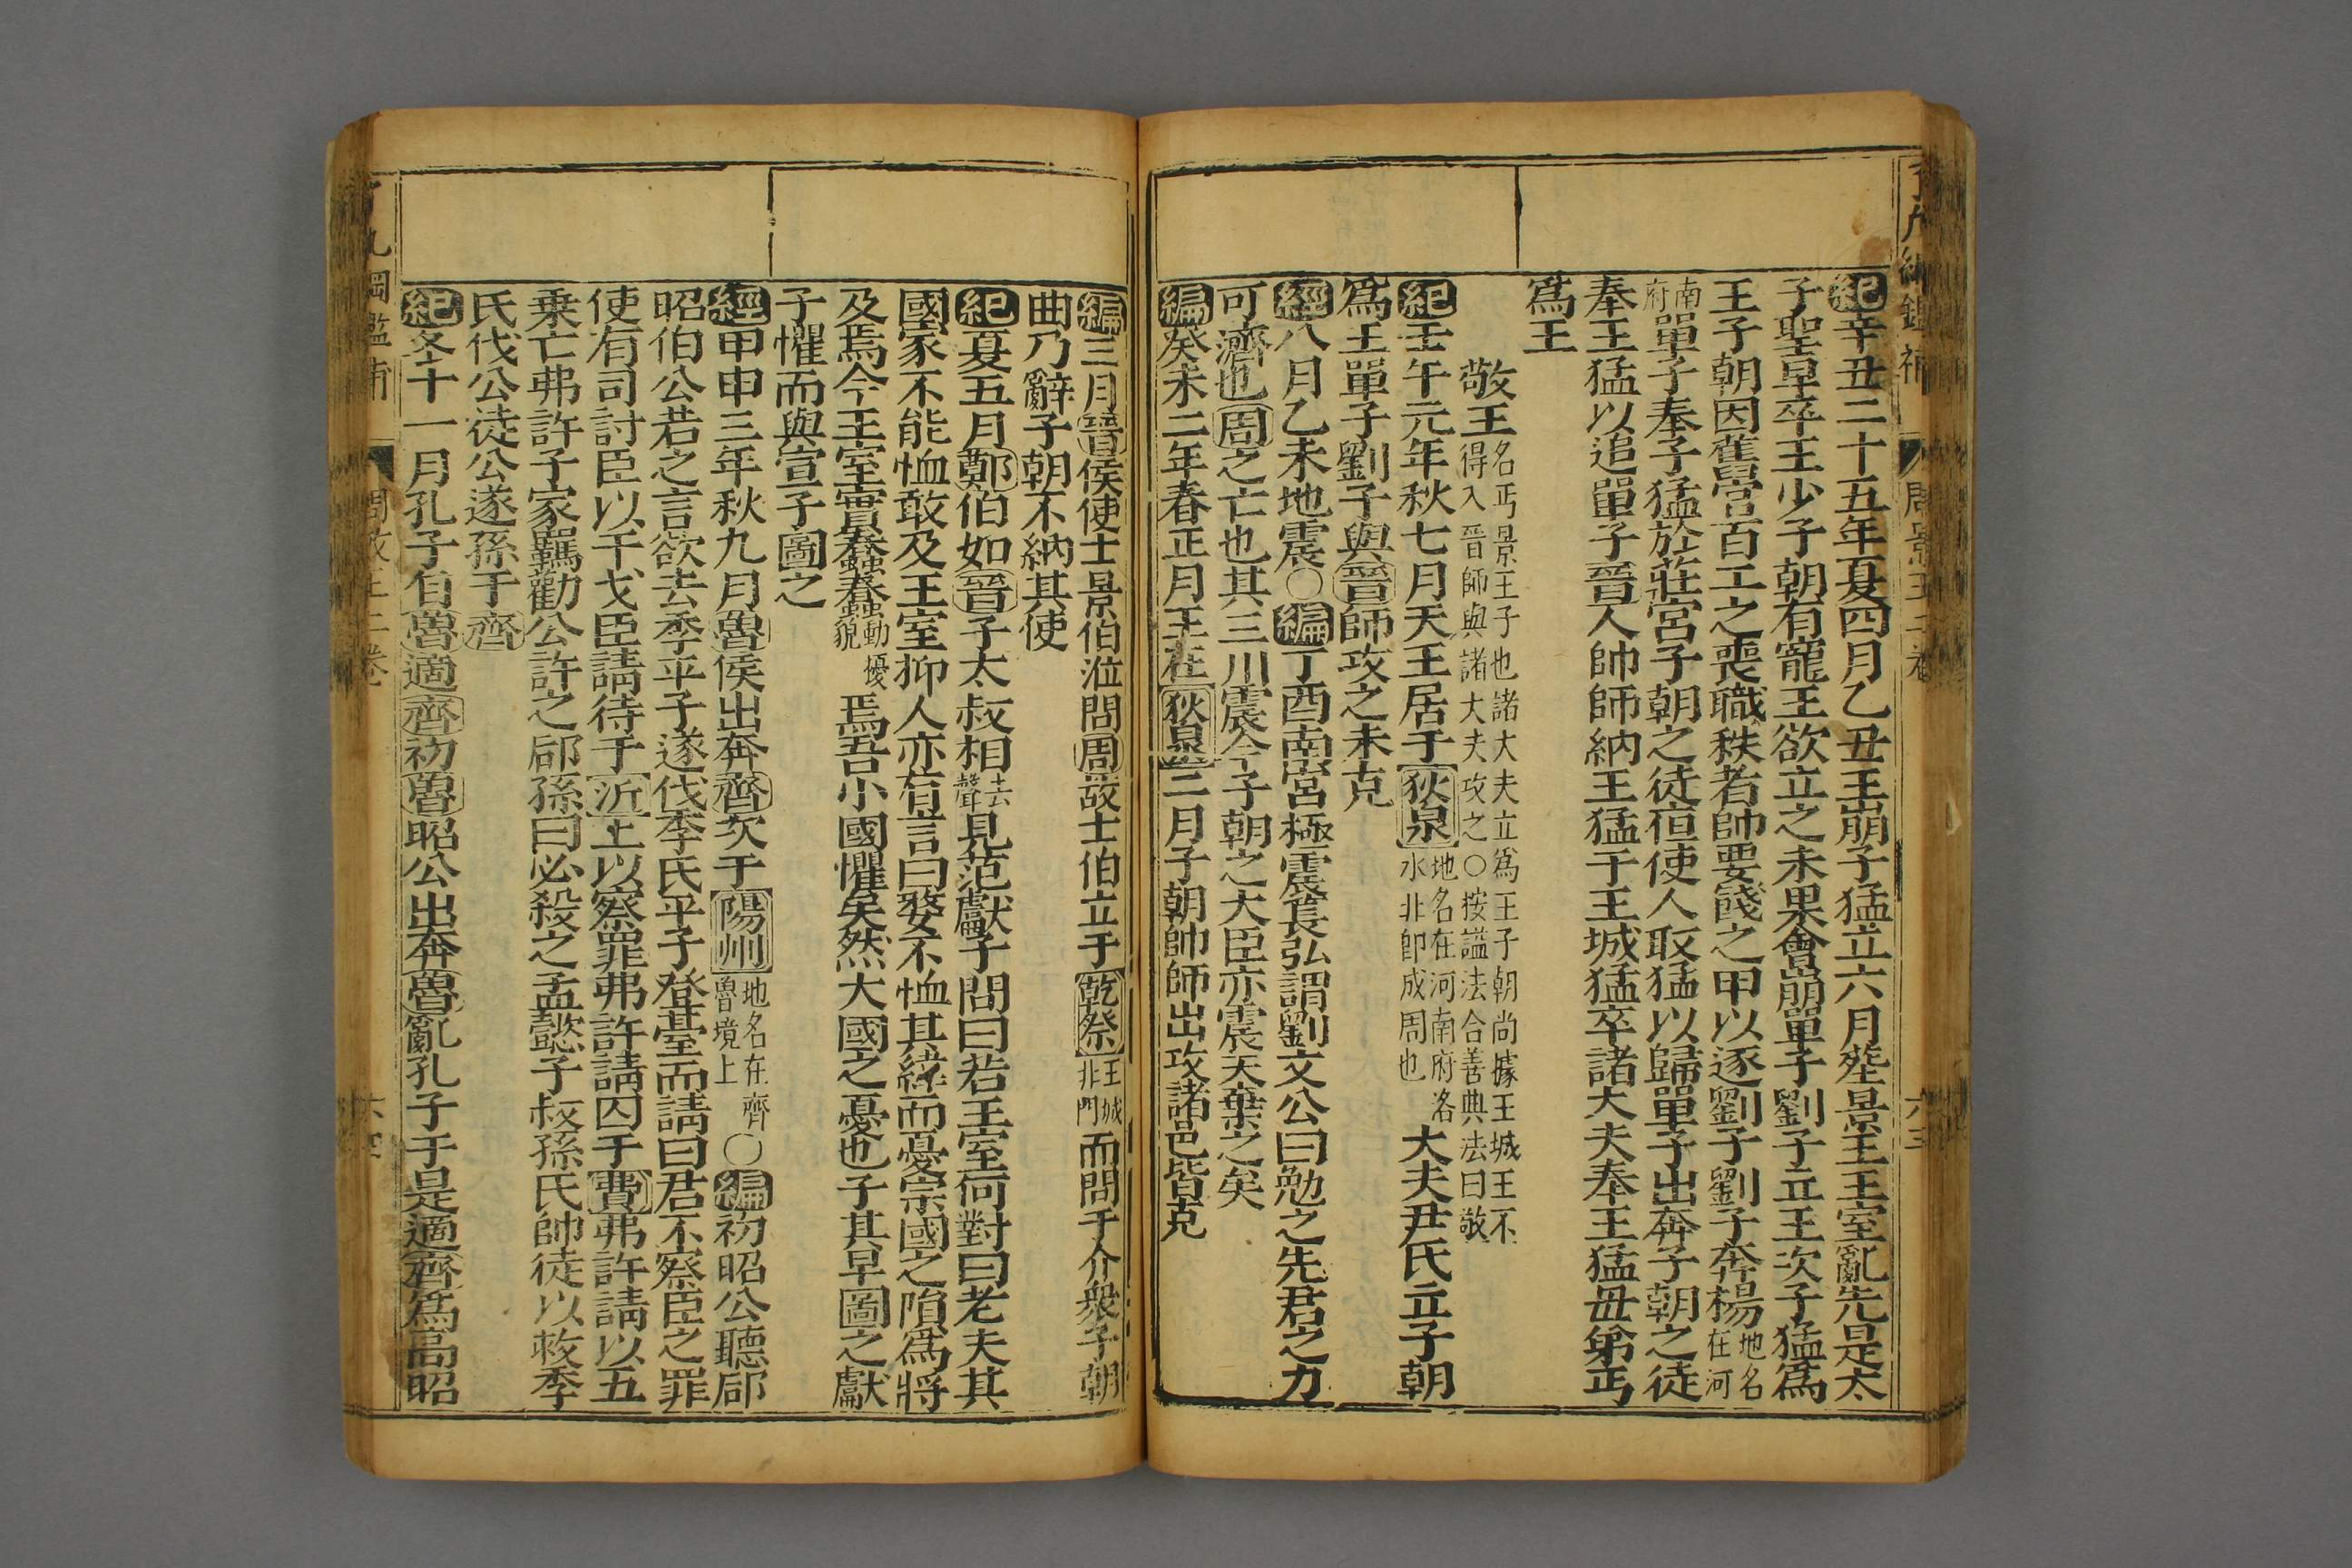 綱鑑補
周景王 二卷
六三
紀辛丑二十五年夏四月乙丑王崩子猛立六月塟景王王室亂先是太
子聖早卒王少子朝有寵王欲立之未果會崩單子劉子立王次子猛為
王子朝因舊官百工之喪職秩者帥要餞之甲以逐劉子劉子奔楊地名在河
南府單子奉子猛於莊宮子朝之徒宿使人取猛以歸單子出奔子朝之徒
奉王猛以追單子晉人帥師納王猛于王城猛卒諸大夫奉王猛母弟丐
為王
敬王名丐景王子也諸大夫立為王子朝尚據王城王不得入晉師與諸大夫攻之○按謚法合善典法曰敬
紀壬午元年秋七月天王居于狄泉地名在河南府洛水非即成周也大夫尹氏立子朝
為王單子劉子與晉師攻之未克
經八月乙未地震○編丁酉南宮極震萇弘謂劉文公曰勉之先君之力
可濟也周之亡也其三川震今子朝之大臣亦震天棄之矣
編癸未二年春正月王在狄泉三月子朝帥師出攻諸邑皆克
編三月晉侯使士景伯涖問周故士伯立于乾祭王城非門而問于介衆子朝
曲乃辭子朝不納其使
紀夏五月鄭伯如晉子太叔相去聲見范獻子問曰若王室何對曰老夫其
國家不能恤敢及王室抑人亦有言曰嫠不恤其緯而憂宗國之隕為將
及焉今王室實蠢蠢動憂貌焉吾小國懼矣然大國之憂也子其早圖之獻
子懼而與宣子圖之
經甲申三年秋九月魯侯出奔齊次于陽州地名在齊魯境上○編初昭公聽郈
昭伯公若之言欲去季平子遂伐季氏平子登臺而請曰君不察臣之罪
使有司討臣以干戈臣請待于沂上以察罪弗許請囚于費弗許請以五
乗亡弗許子家羈勸公許之郈孫曰必殺之孟懿子叔孫氏帥徒以救季
氏伐公徒公遂孫于齊
紀冬十一月孔子自魯適齊初魯昭公出奔魯亂孔子于是適齊為高昭
綱鑑補
周敬王 二卷